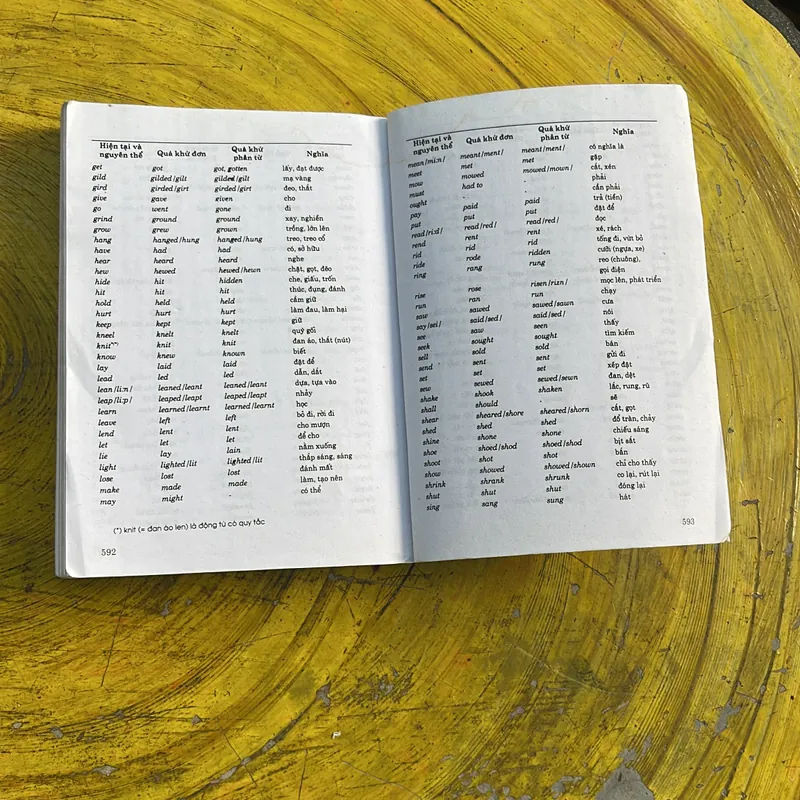 Hiện tại và nguyên thể Quá khứ đơn Quá khứ phân từ Nghĩa
get got got, gotten lấy, đạt được
gild gilded/gilt gilded/gilt mạ vàng
gird girded/girt girded/girt đeo, thắt
give gave given cho
go went gone đi
grind ground ground xay, nghiền
grow grew grown trồng, lớn lên
hang hanged/hung hanged/hung treo, treo cổ
have had had có, sở hữu
hear heard heard nghe
hew hewed hewed/hewn chặt, gọt, đẽo
hide hit hidden che, giấu, trốn
hit hit hit thúc, đụng, đánh
hold held held cầm giữ
hurt hurt hurt làm đau, làm hại
keep kept kept giữ
kneel knelt knelt quỳ gối
knit(*) knit knit đan áo, thắt (nút)
know knew known biết
lay laid laid đặt để
lead led led dẫn, dắt
lean/li:n/ leaned/leant leaned/leant dựa, tựa vào
leap/li:p/ leaped/leapt leaped/leapt nhảy
learn learned/learnt learned/learnt học
leave left left bỏ đi, rời đi
lend lent lent cho mượn
let let let để cho
lie lay lain nằm xuống
light lighted/lit lighted/lit thắp sáng, sáng
lose lost lost đánh mất
make made made làm, tạo nên
may might - có thể
(*) knit (= đan áo len) là động từ có quy tắc
592
Hiện tại và nguyên thể Quá khứ đơn Quá khứ phân từ Nghĩa
mean/mi:n/ meant/ment/ meant/ment/ có nghĩa là
meet met met gặp
mow mowed mowed/mown/ cắt, xén
must had to - phải
ought cần phải
pay paid paid trả (tiền)
put put put đặt để
read/ri:d/ read/red/ read/red/ đọc
rend rent rent xé, rách
rid rid rid tống đi, vứt bỏ
ride rode ridden cưỡi (ngựa, xe)
ring rang rung reo (chuông),
gọi điện
rise rose risen/rizn/ mọc lên, phát triển
run ran run chạy
saw sawed sawed/sawn cưa
say/sei/ said/sed/ said/sed/ nói
see saw seen thấy
seek sought sought tìm kiếm
sell sold sold bán
send sent sent gửi đi
set set set xếp đặt
sew sewed sewed/sewn đan, dệt
shake shook shaken lắc, rung, rũ
shall should sẽ
shear sheared/shore sheared/shorn cắt, gọt
shed shed shed đổ tràn, chảy
shine shone shone chiếu sáng
shoe shoed/shod shoed/shod bịt sắt
shoot shot shot bắn
show showed showed/shown chỉ cho thấy
shrink shrank shrunk co lại, rút lại
shut shut shut đóng lại
sing sang sung hát
593